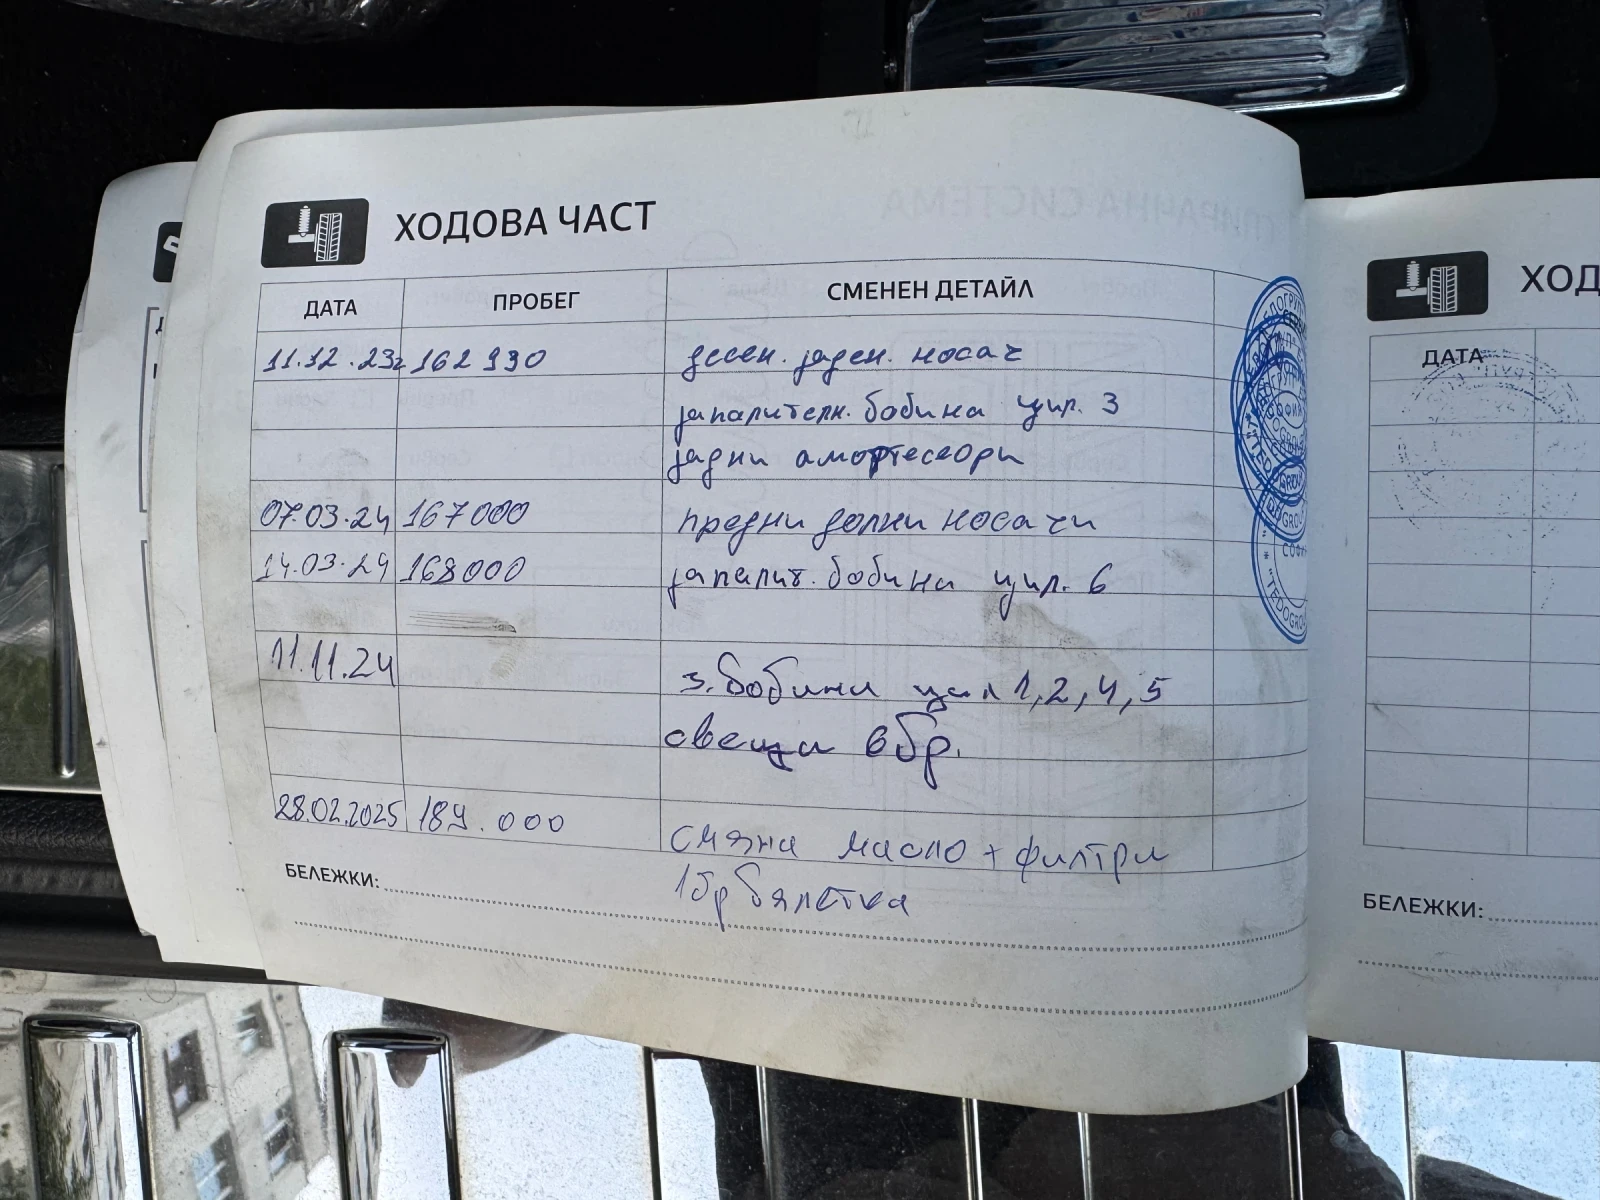 ХОДОВА ЧАСТ
ДАТА ПРОБЕГ СМЕНЕН ДЕТАЙЛ
11.12.23г 162 990 десен. заден. носач
запалителн. бобина цил. 3
задни амортесеори
07.03.24 167000 предни долни носачи
14.03.24 168000 запалит. бобина цил. 6
11.11.24 з. бобини цил 1, 2, 4, 5
свещи 6бр.
28.02.2025 189.000 смяна масло + филтри
1бр бялетка
БЕЛЕЖКИ:
ХОД
ДАТА
БЕЛЕЖКИ: